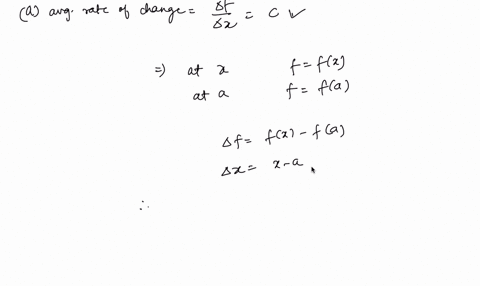 (a) avg. rate of change = Δf/Δx = C ✓
=> at x f = f(x)
at a f = f(a)
Δf = f(x) - f(a)
Δx = x - a
∴